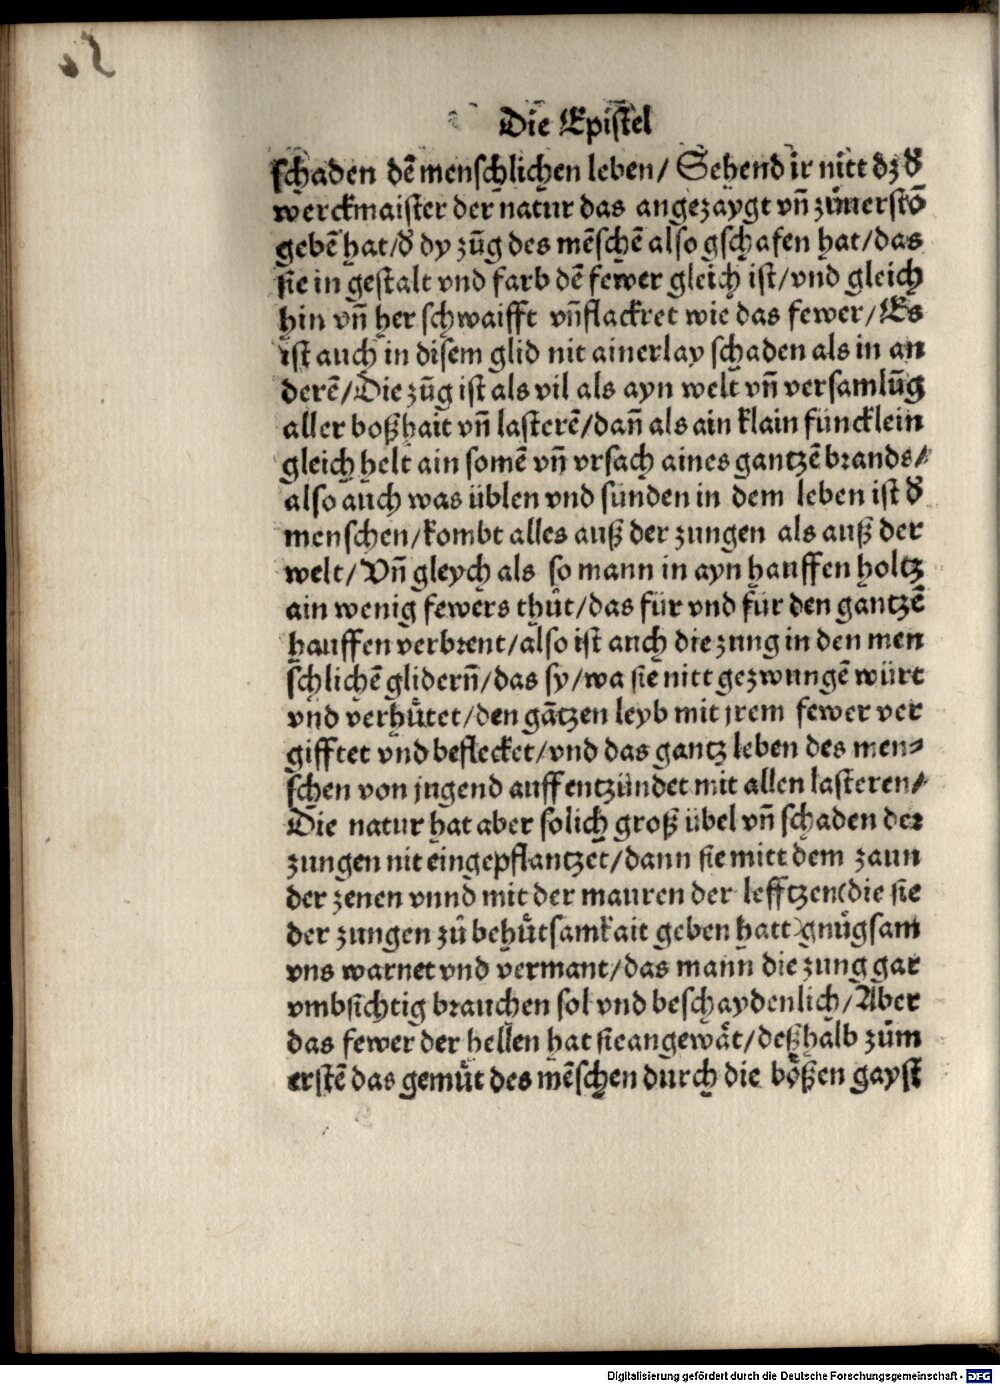 Die Epistel
schaden dē menschlichen leben/ Sehend ir nitt dz d̕
werckmaister der natur das angezaygt vñ zůuerstō
gebē hat/d̕ dy zūg des mēschē also gschafen hat/das
sie in gestalt vnd farb dē fewer gleich ist/vnd gleich
hin vñ her schwaifft vñflackret wie das fewer/Es
ist auch in disem glid nit ainerlay schaden als in an
derē/Die zūg ist als vil als ayn welt vñ versamlūg
aller boßhait vñ lasterē/dañ als ain klain füncklein
gleich helt ain somē vñ vrsach aines gantzē brands/
also auch was üblen vnd sünden in dem leben ist d̕
menschen/kombt alles auß der zungen als auß der
welt/Vñ gleych als so mann in ayn hauffen holtz
ain wenig fewers thůt/das für vnd für den gantzē
hauffen verbrent/also ist auch die zung in den men
schlichē gliderñ/das sy/wa sie nitt gezwungē würt
vnd verhůtet/den gātzen leyb mit jrem fewer ver
gifftet vnd beflecket/vnd das gantz leben des men⸗
schen von jugend auff entzündet mit allen lasteren/
Die natur hat aber solich groß übel vñ schaden der
zungen nit eingepflantzet/dann sie mitt dem zaun
der zenen vnnd mit der mauren der lefftzen(die sie
der zungen zů behůtsamkait geben hatt)gnůgsam
vns warnet vnd vermant/das mann die zung gar
vmbsichtig brauchen sol vnd beschaydenlich/Aber
das fewer der hellen hat sieangewǎt/deßhalb zům
erstē das gemůt des mēschen durch die bößen gayst
Digitalisierung gefördert durch die Deutsche Forschungsgemeinschaft - DFG